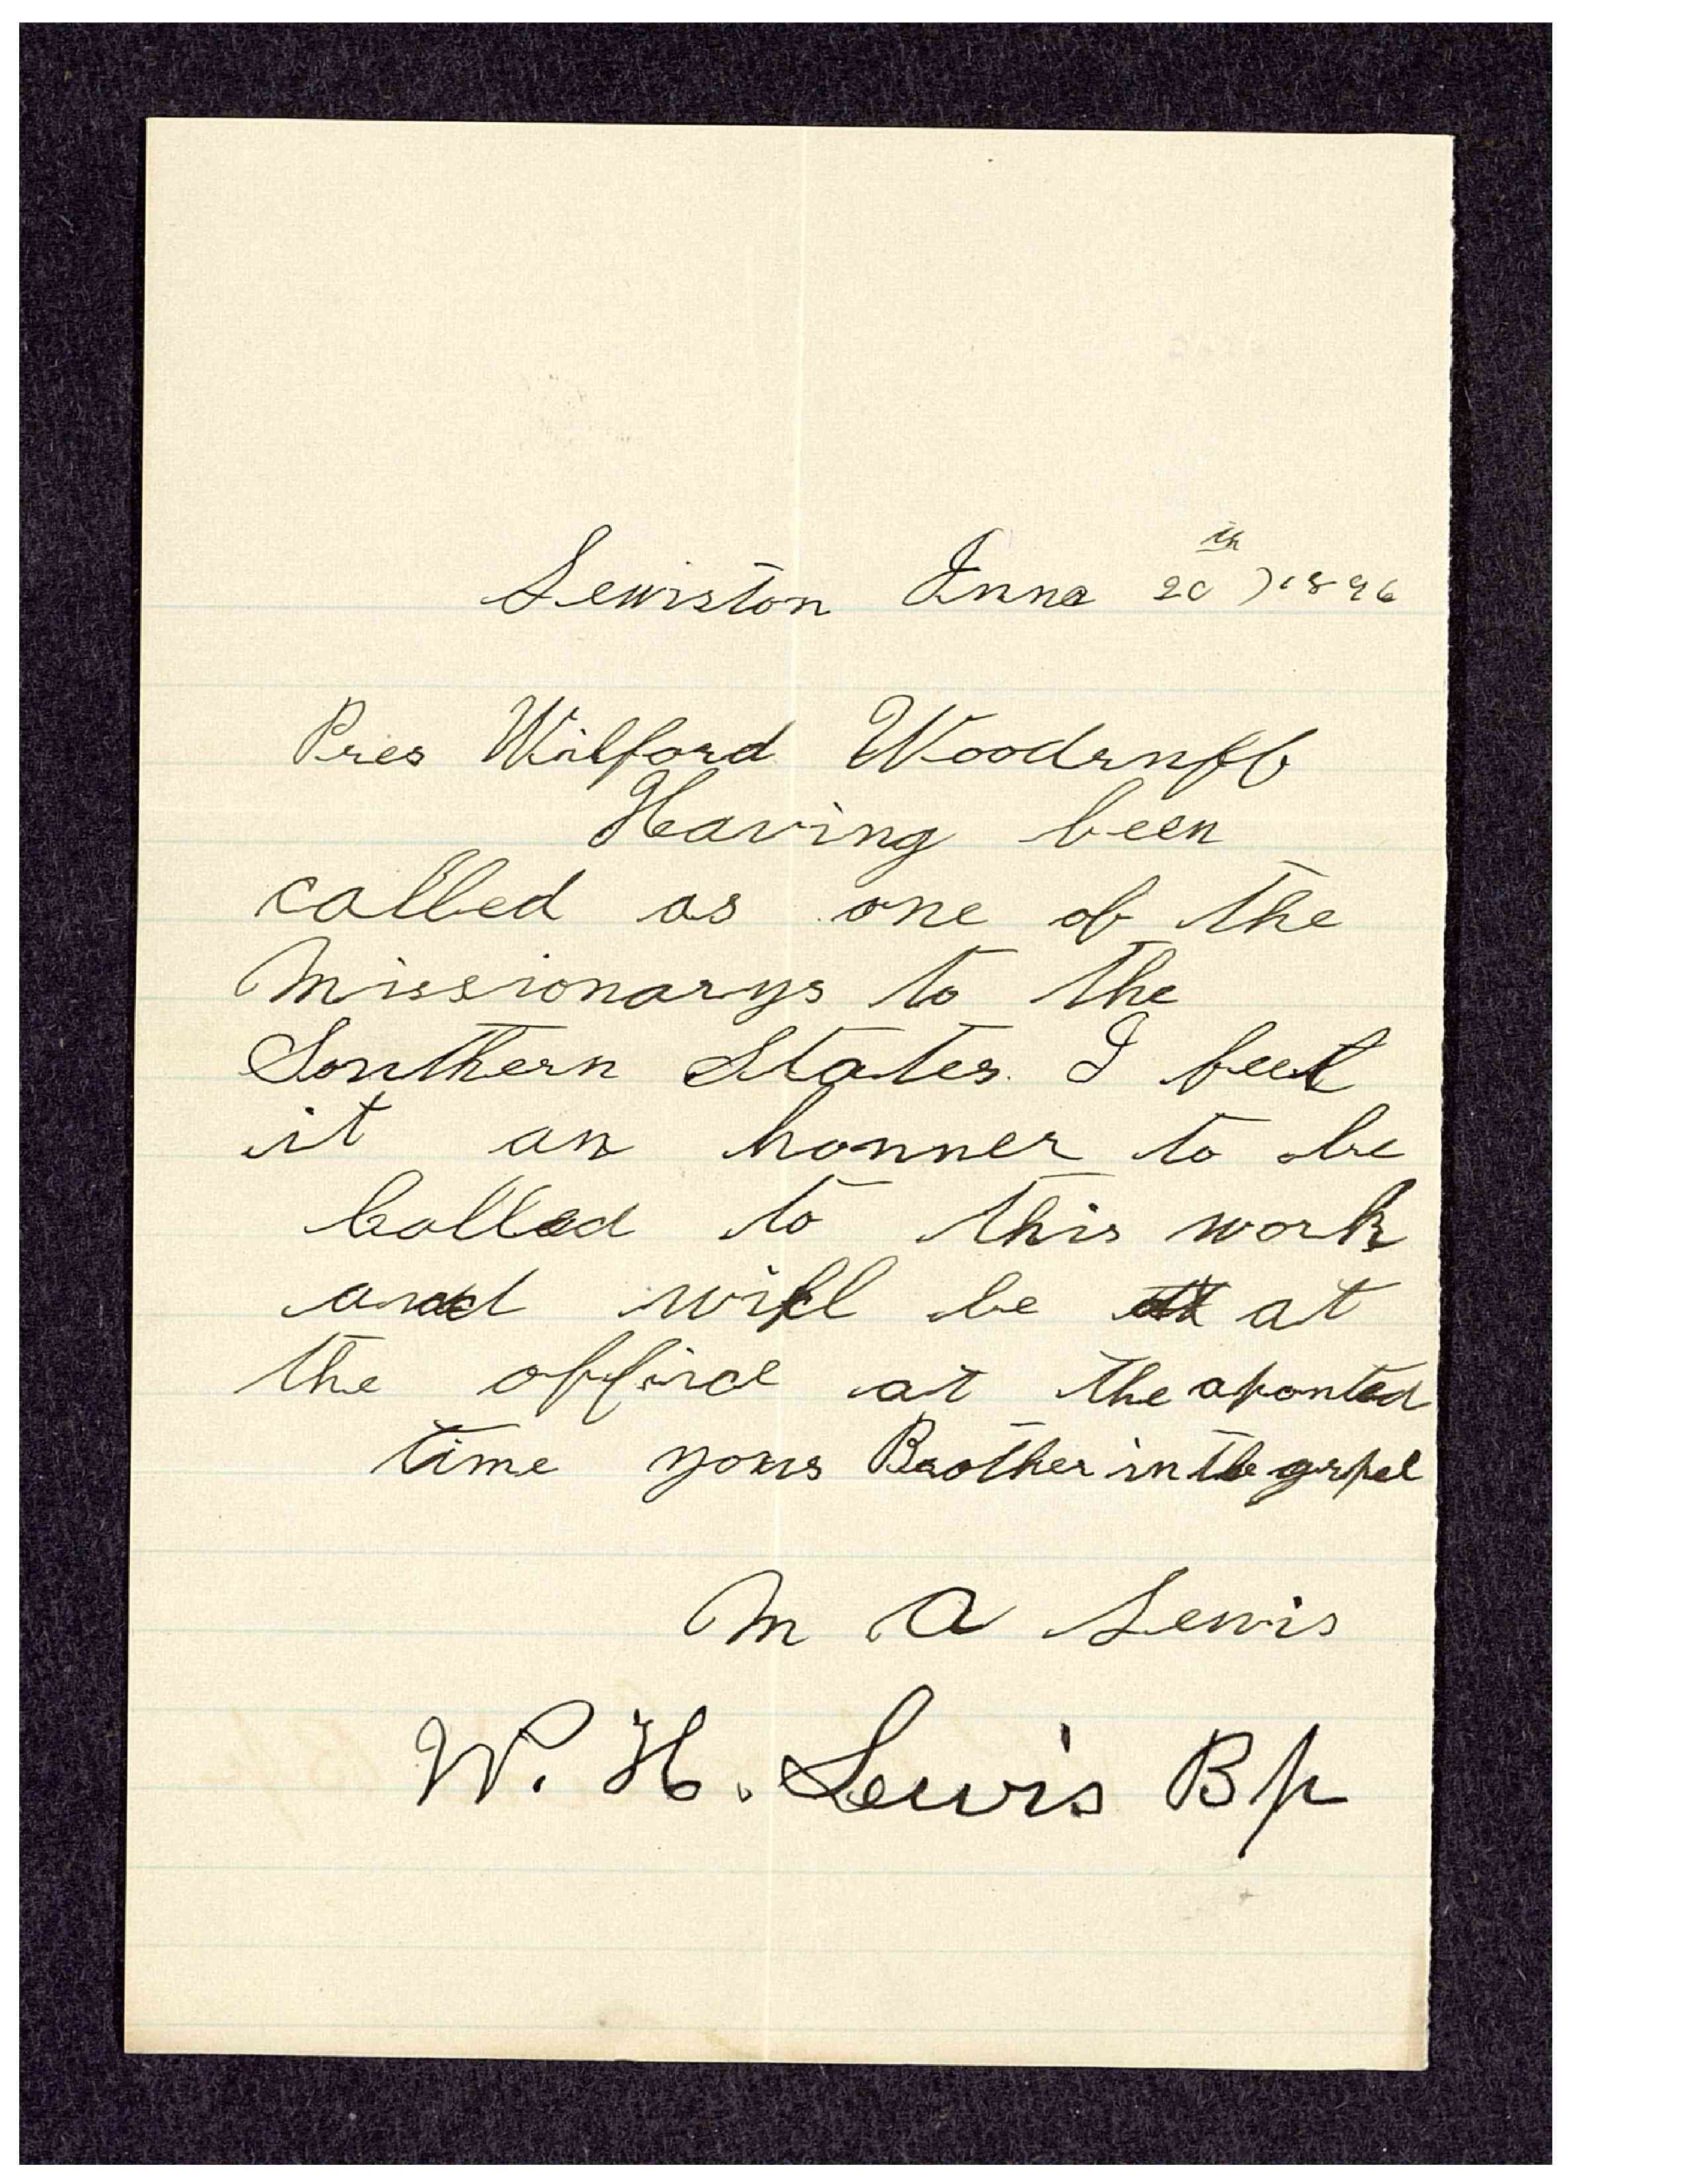 Lewiston June 20th 1896
Pres Wilford Woodruff
Having been
called as one of the
Missionarys to the
Southern States. I feel
it an honner to be
called to this work
and will be at
the offince at the aponted
time yours Brother in the gospel
M A Lewis
W. H. Lewis Bp